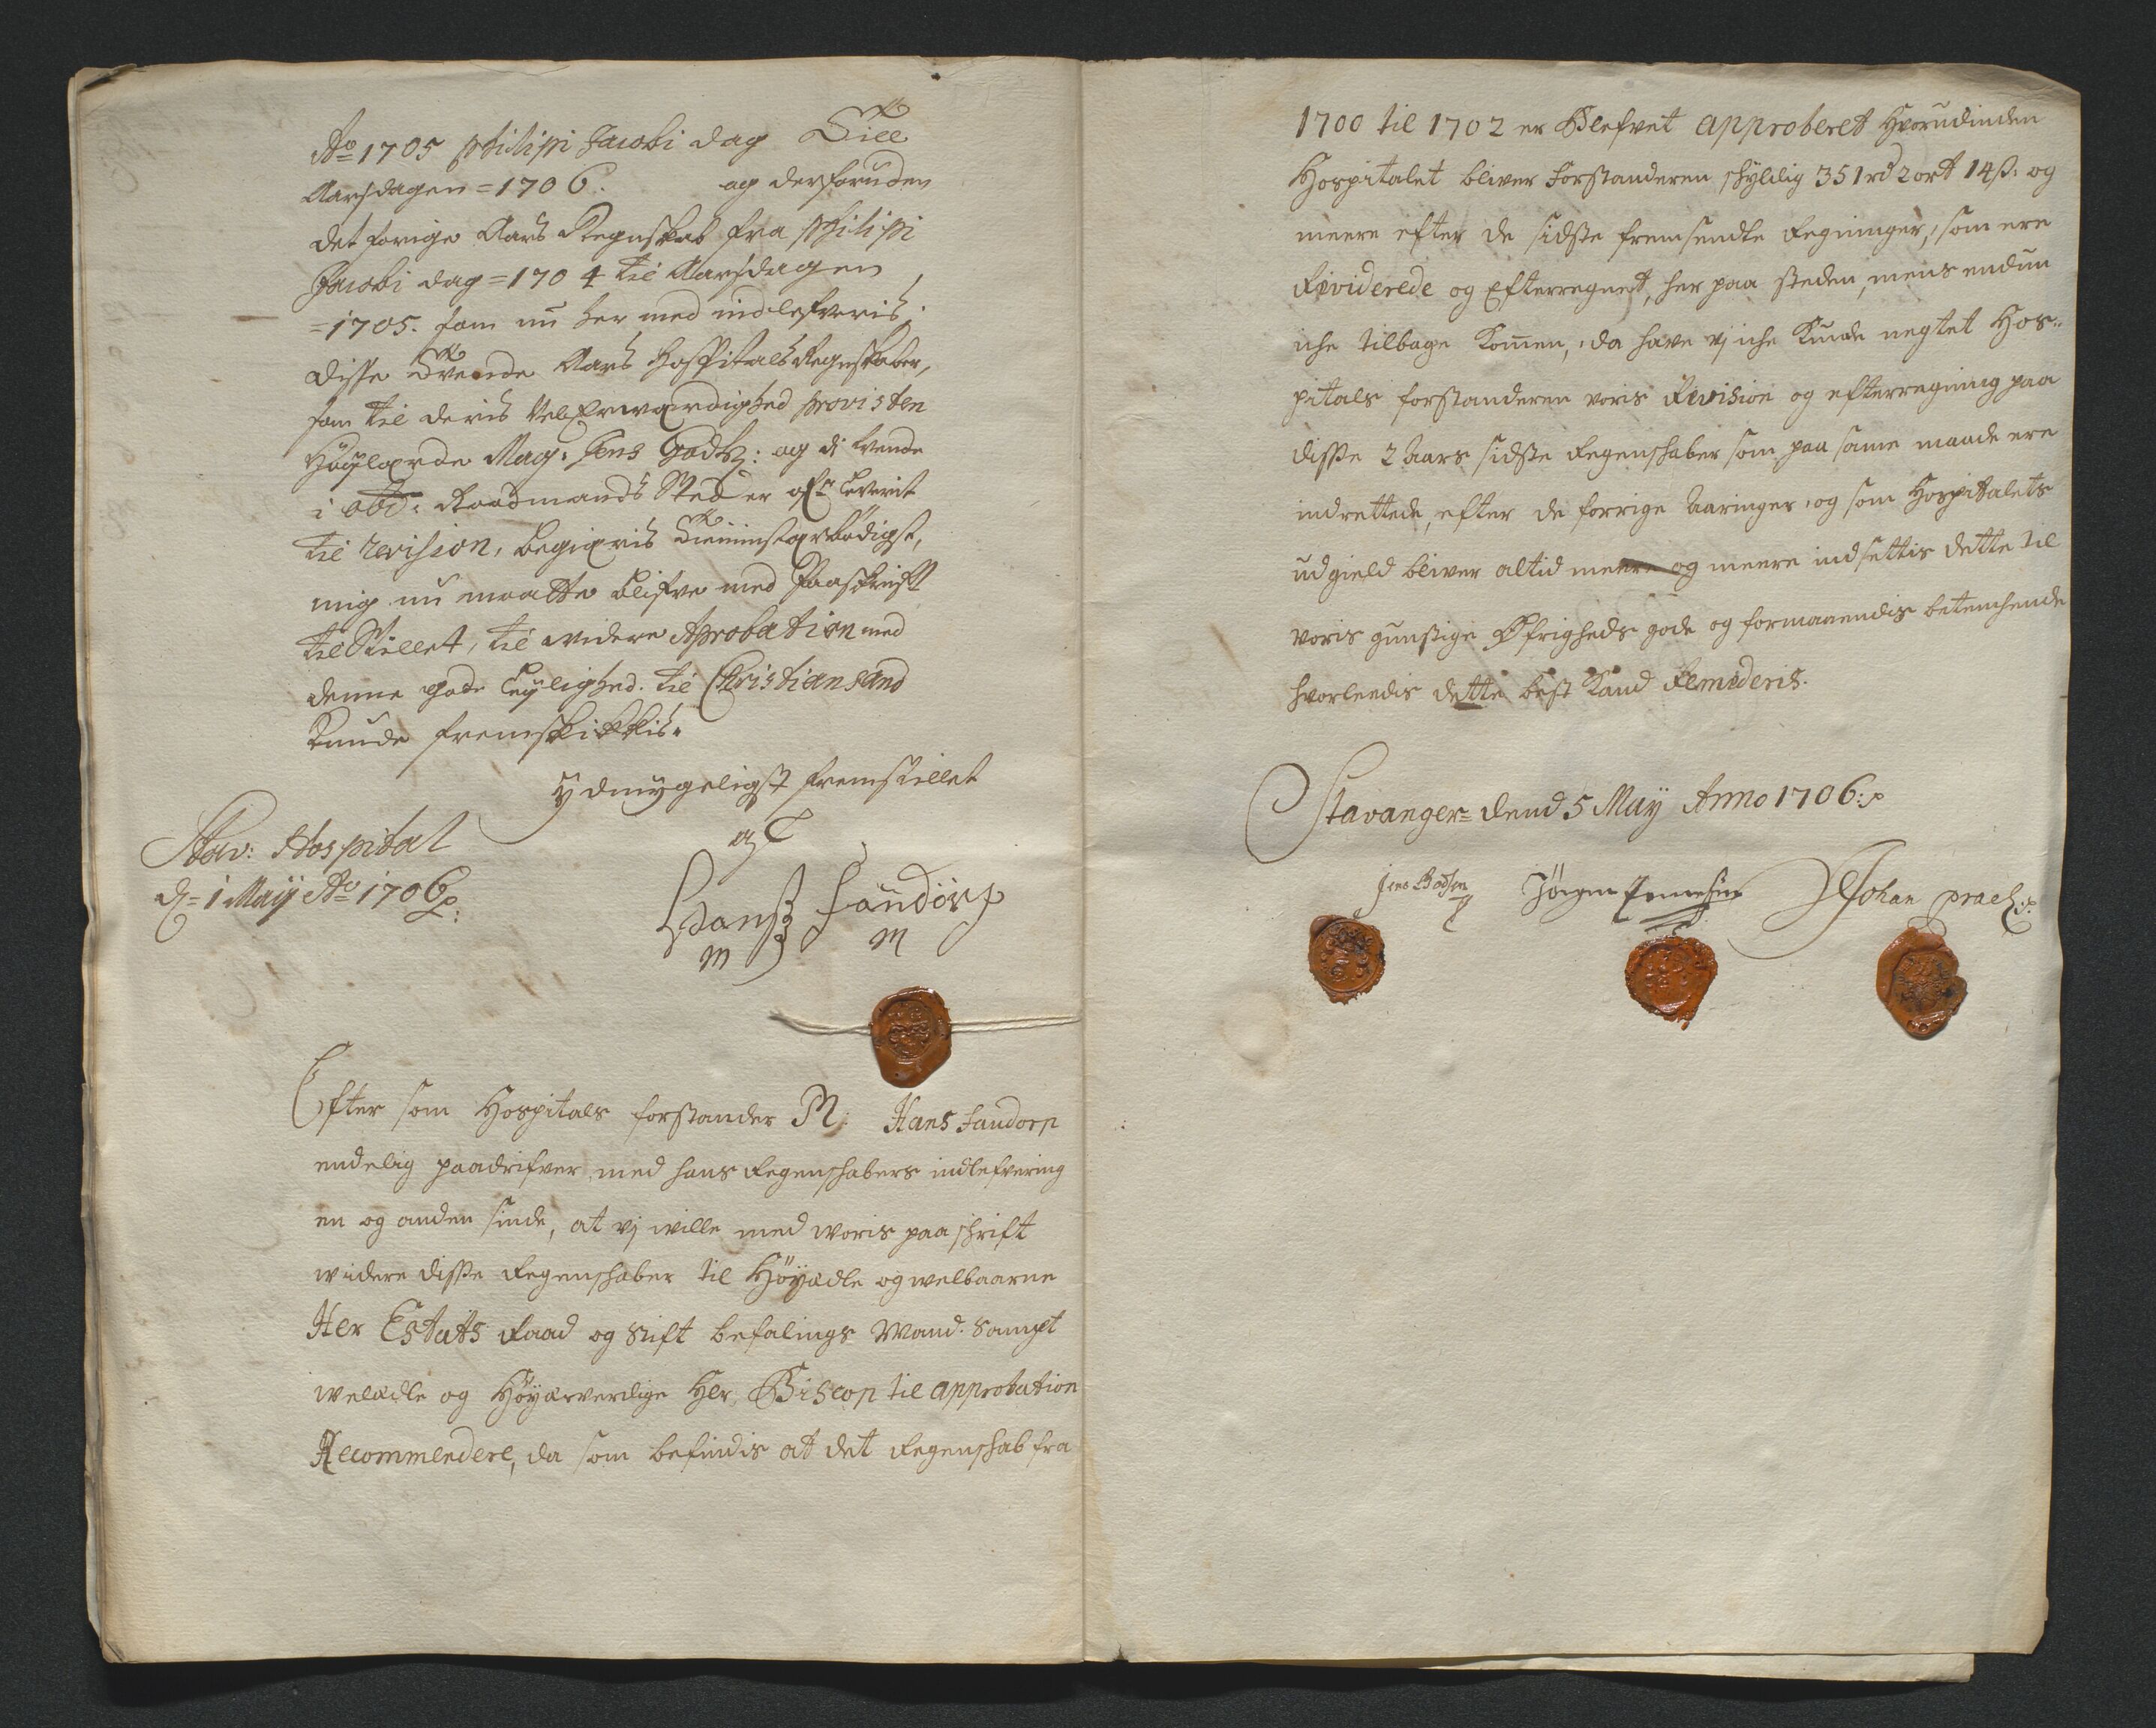 Ao 1705 philipi Jacobi dag Till
Aarsdagen = 1706. og desforuden
det forige Aars Regnskab fra philipi
Jacobi dag = 1704 til Aarsdagen
= 1705. som nu her med indlefveris,
disse Tvende Aars Hospitals Regnskaber,
som til deris VelErværdighed provisten
Høylærde Mag: Jens Godtz: og di tvende
i Raadmands Sted er leverit
til revision, begiæris tiennistærbødigst,
mig nu maatte blifve med Paaskrifft
tilstillet, til widere Aprobation med
denne gode leylighed til Christiansand
kunde fremskikkis.
Ydmygeligst fremstillet
af
Stav: Hospital
d = 1 Maij Ao 1706
Hansz Sandorp
m m
Efter som Hospitals forstander M: Hans Sandorp
endelig paadrifver, med hans Regenschabers indlefvering
en og anden sinde, at vj wille med woris paaschrift
widere disse Regenschaber til Höyædle og welbaarne
Her Estats Raad og Stift befalings Mand. Sampt
welædle og Höyærverdige Her, Biscop til approbation
Recommendere, da som befindis at det Regenschab fra
1700 til 1702 er Blefvet approberet Hvorudinden
Hospitalet bliver forstanderen schyldig 351 rd 2 ort 14 ß. og
meere efter de sidste fremsendte Regninger, som ere
Reviderede og Efterregnet, her paa steden, mens endnu
iche tilbage kommen, da have vj iche kunde negtet Hos-
pitals forstanderen voris Revision og efterregning paa
disse 2 Aars sidste Regenschaber som paa same maade ere
indrettede, efter de forrige Aaringer, og som Hospitalets
udgield bliver altid meere og meere indsettis dette til
voris gunstige Øfrigheds gode og formaaendis betenchende
hvorlendis dette best kand Remideris.
Stavanger = dend 5 Maÿ Anno 1706:
Jens Godtzen Jörgen Johan